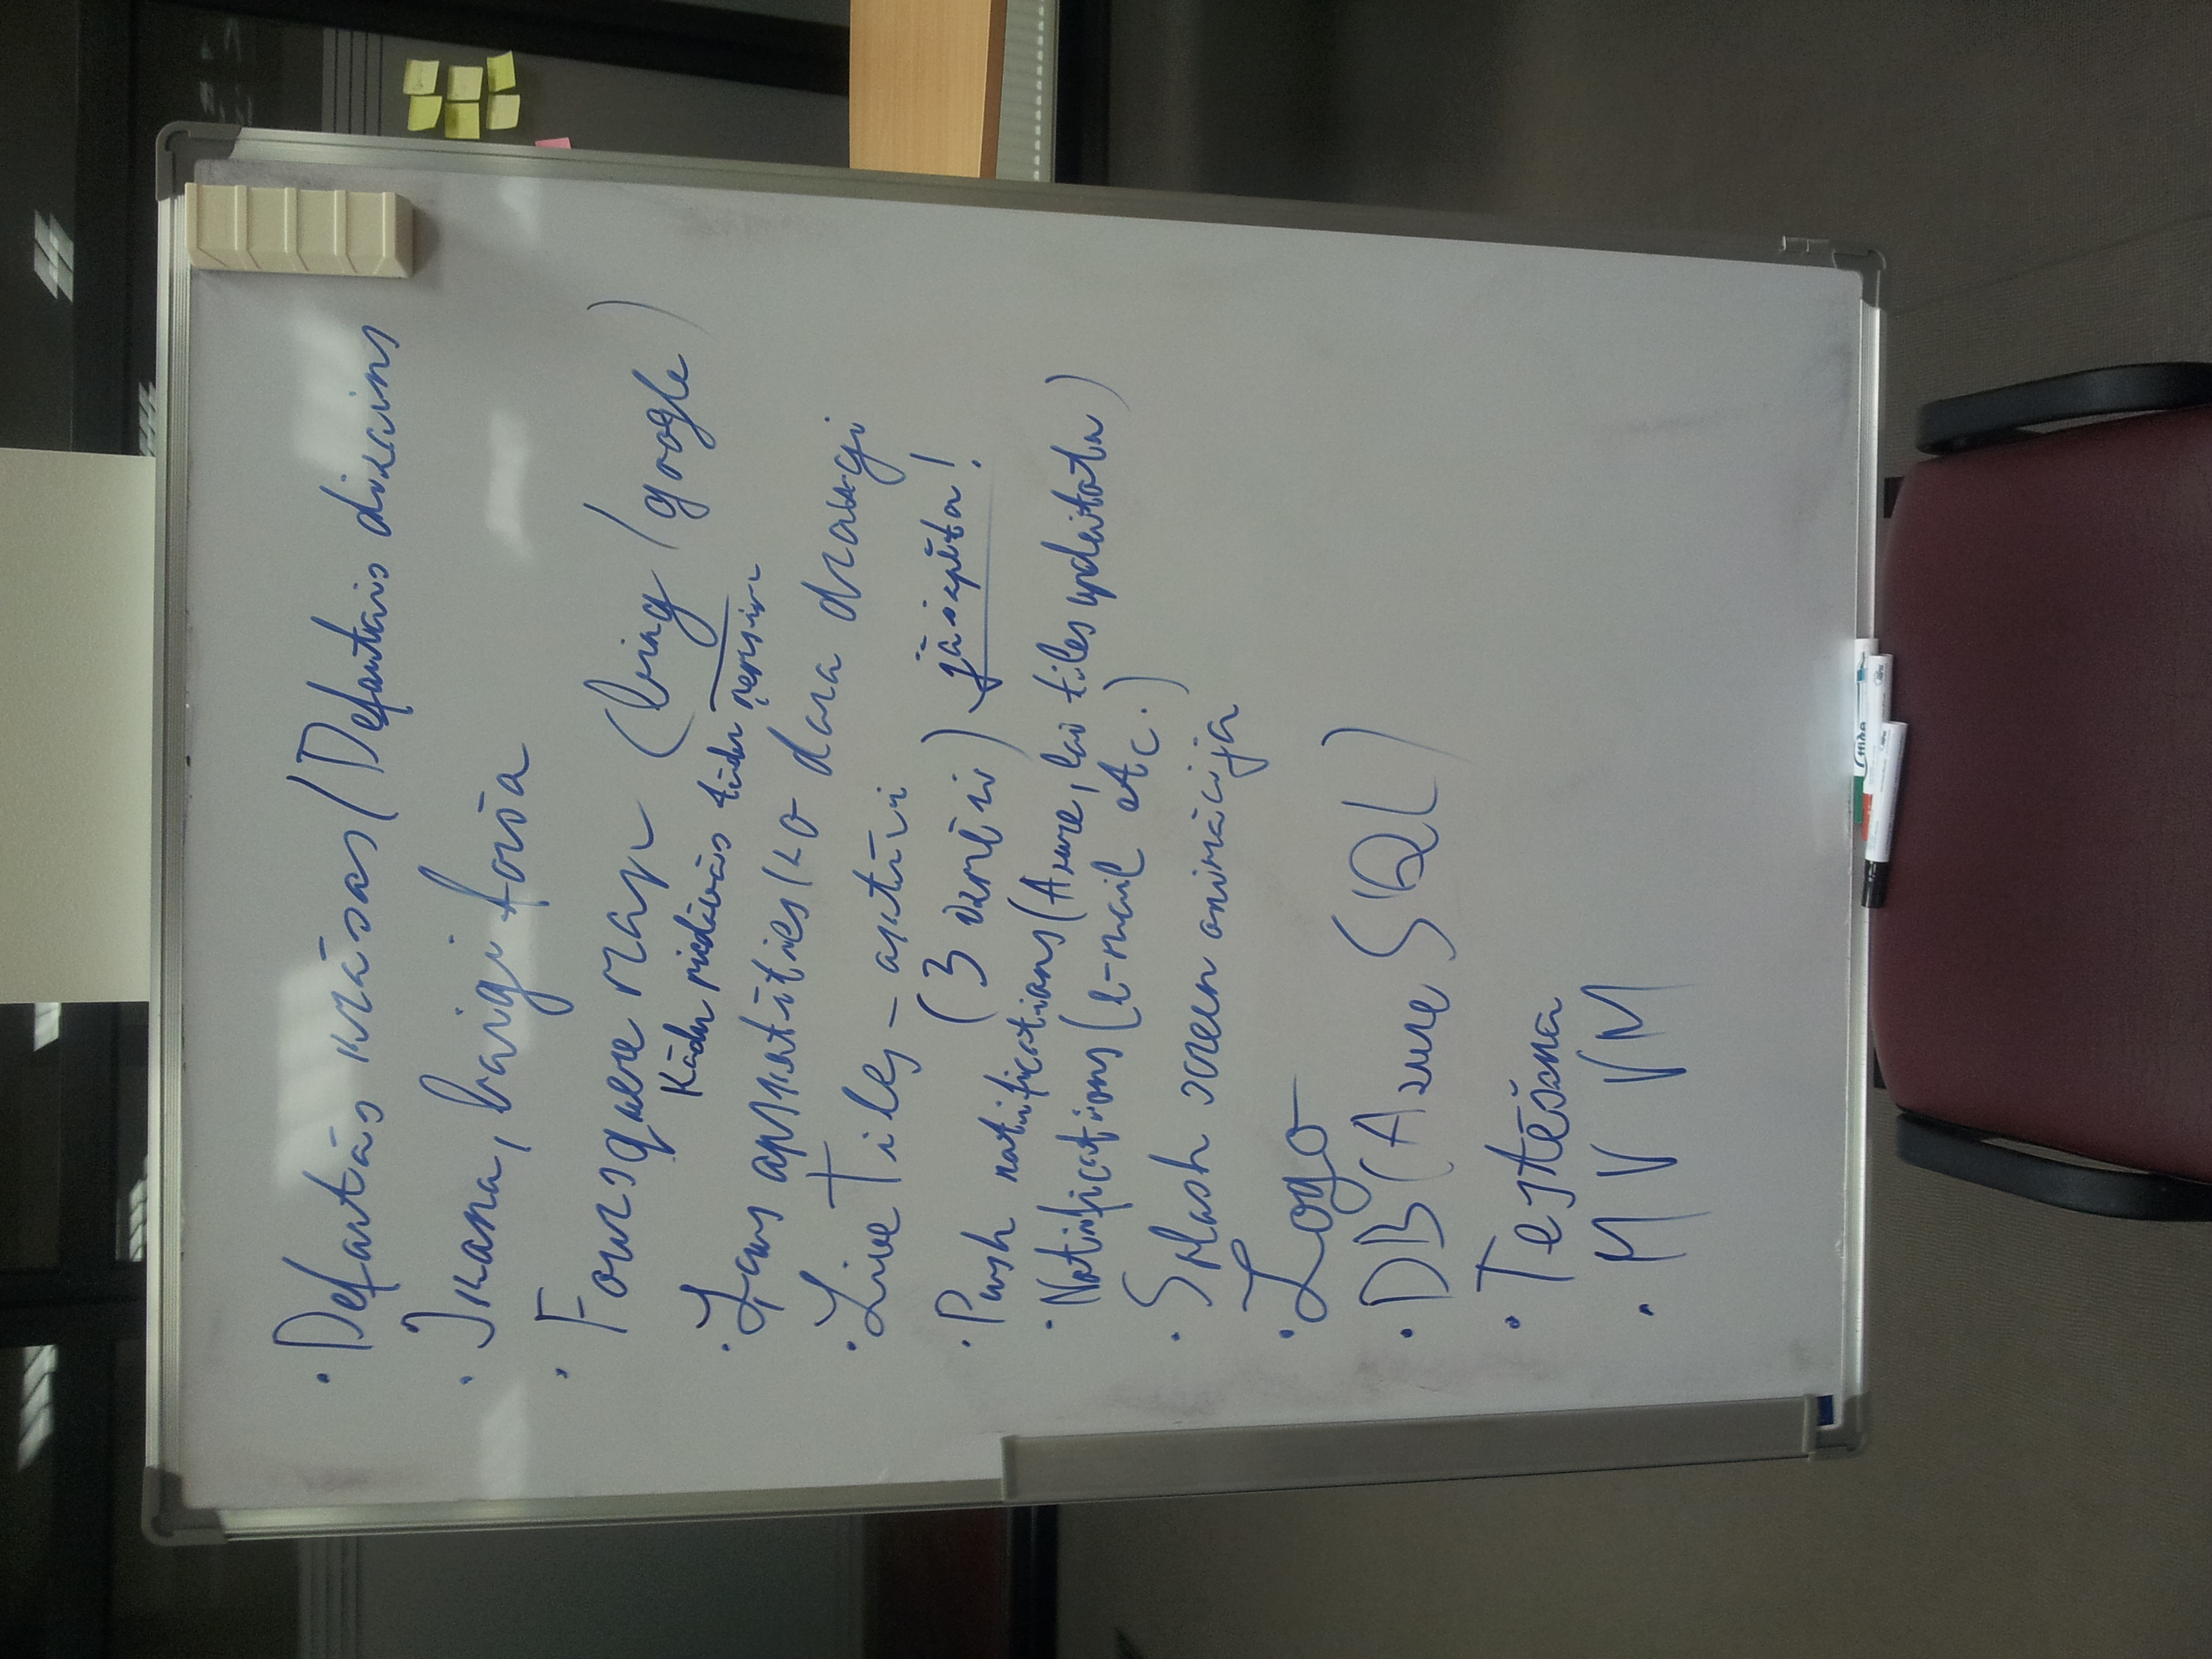 · Defaultās krāsas / Defautais dizains
· Ikona, baigi forša
· Foursquere map (bing / google)
Kādu piedāvās tādu ņemsim
· Ļaus apskatīties ko dara draugi
· Live Tiles - aktīvi
(3 izmēri) jāizpēta!
· Push notifications (Azure, lai tiles updeitotu)
· Notifications (e-mail etc.)
· Splash screen animācija
· Logo
· DB (Azure SQL)
· Testēšana
· MV VM
Office